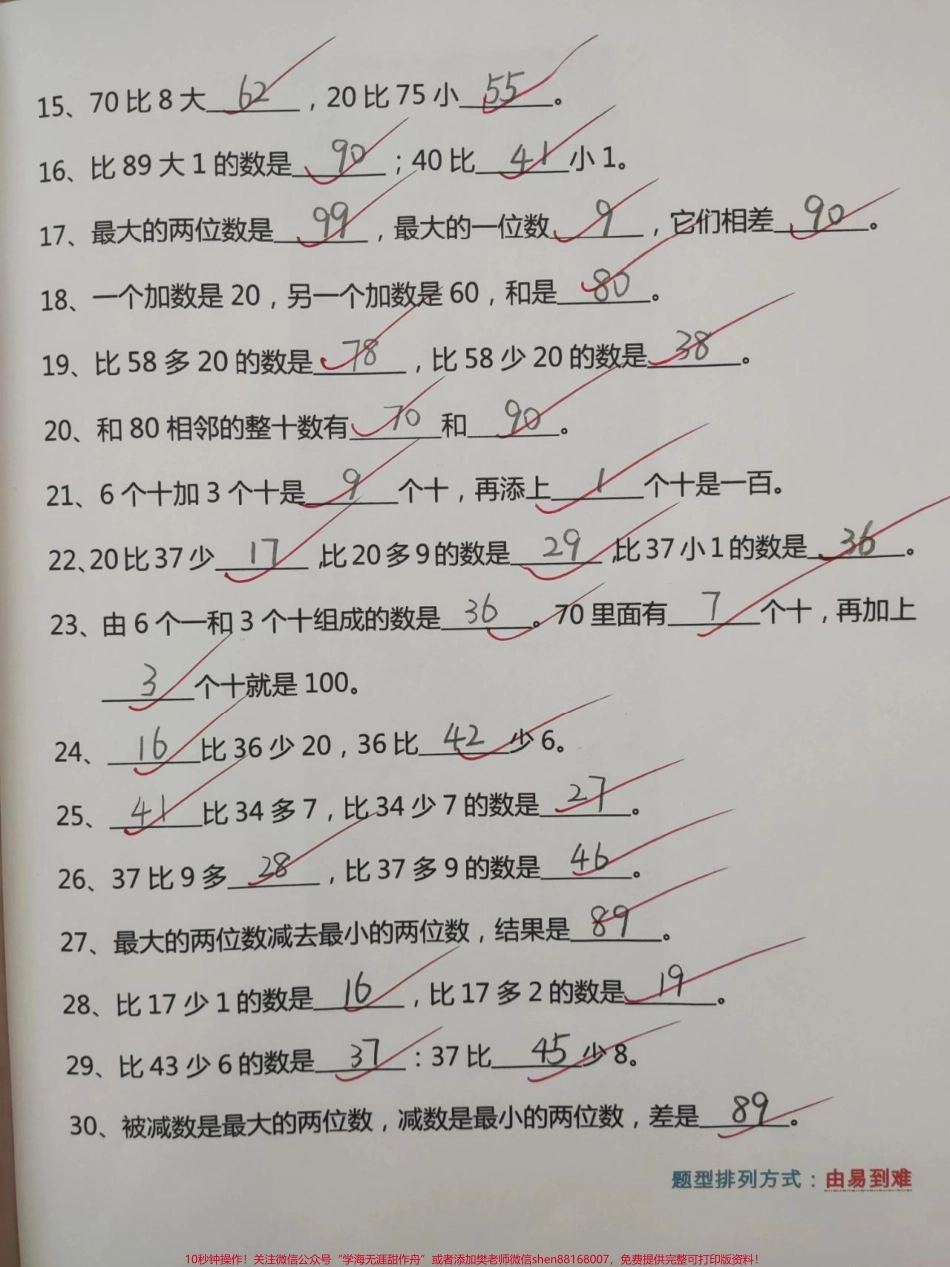 15、70比8大62，20比75小55。
16、比89大1的数是90；40比41小1。
17、最大的两位数是99，最大的一位数9，它们相差90。
18、一个加数是20，另一个加数是60，和是80。
19、比58多20的数是78，比58少20的数是38。
20、和80相邻的整十数有70和90。
21、6个十加3个十是9个十，再添上1个十是一百。
22、20比37少17，比20多9的数是29，比37小1的数是36。
23、由6个一和3个十组成的数是36。70里面有7个十，再加上
3个十就是100。
24、16比36少20，36比42少6。
25、41比34多7，比34少7的数是27。
26、37比9多28，比37多9的数是46。
27、最大的两位数减去最小的两位数，结果是89。
28、比17少1的数是16，比17多2的数是19。
29、比43少6的数是37：37比45少8。
30、被减数是最大的两位数，减数是最小的两位数，差是89。
题型排列方式：由易到难
10秒钟操作！关注微信公众号“学海无涯甜作舟”或者添加樊老师微信shen88168007，免费提供完整可打印版资料！